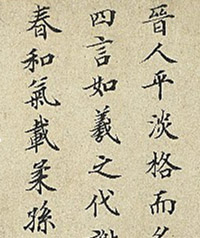 晉人平淡格而多
四言如羲之代謝
春和氣載柔孫